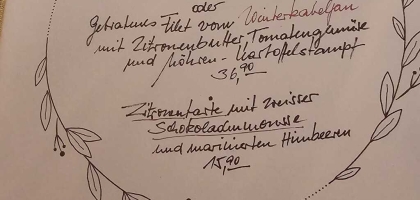 oder
Gebratenes Filet vom Winterkabeljau
mit Zitronenbutter, Tomatengemüse
und Möhren-Kartoffelstampf
36,90
Zitronentarte mit weisser
Schokoladenmousse
und marinierten Himbeeren
15,90